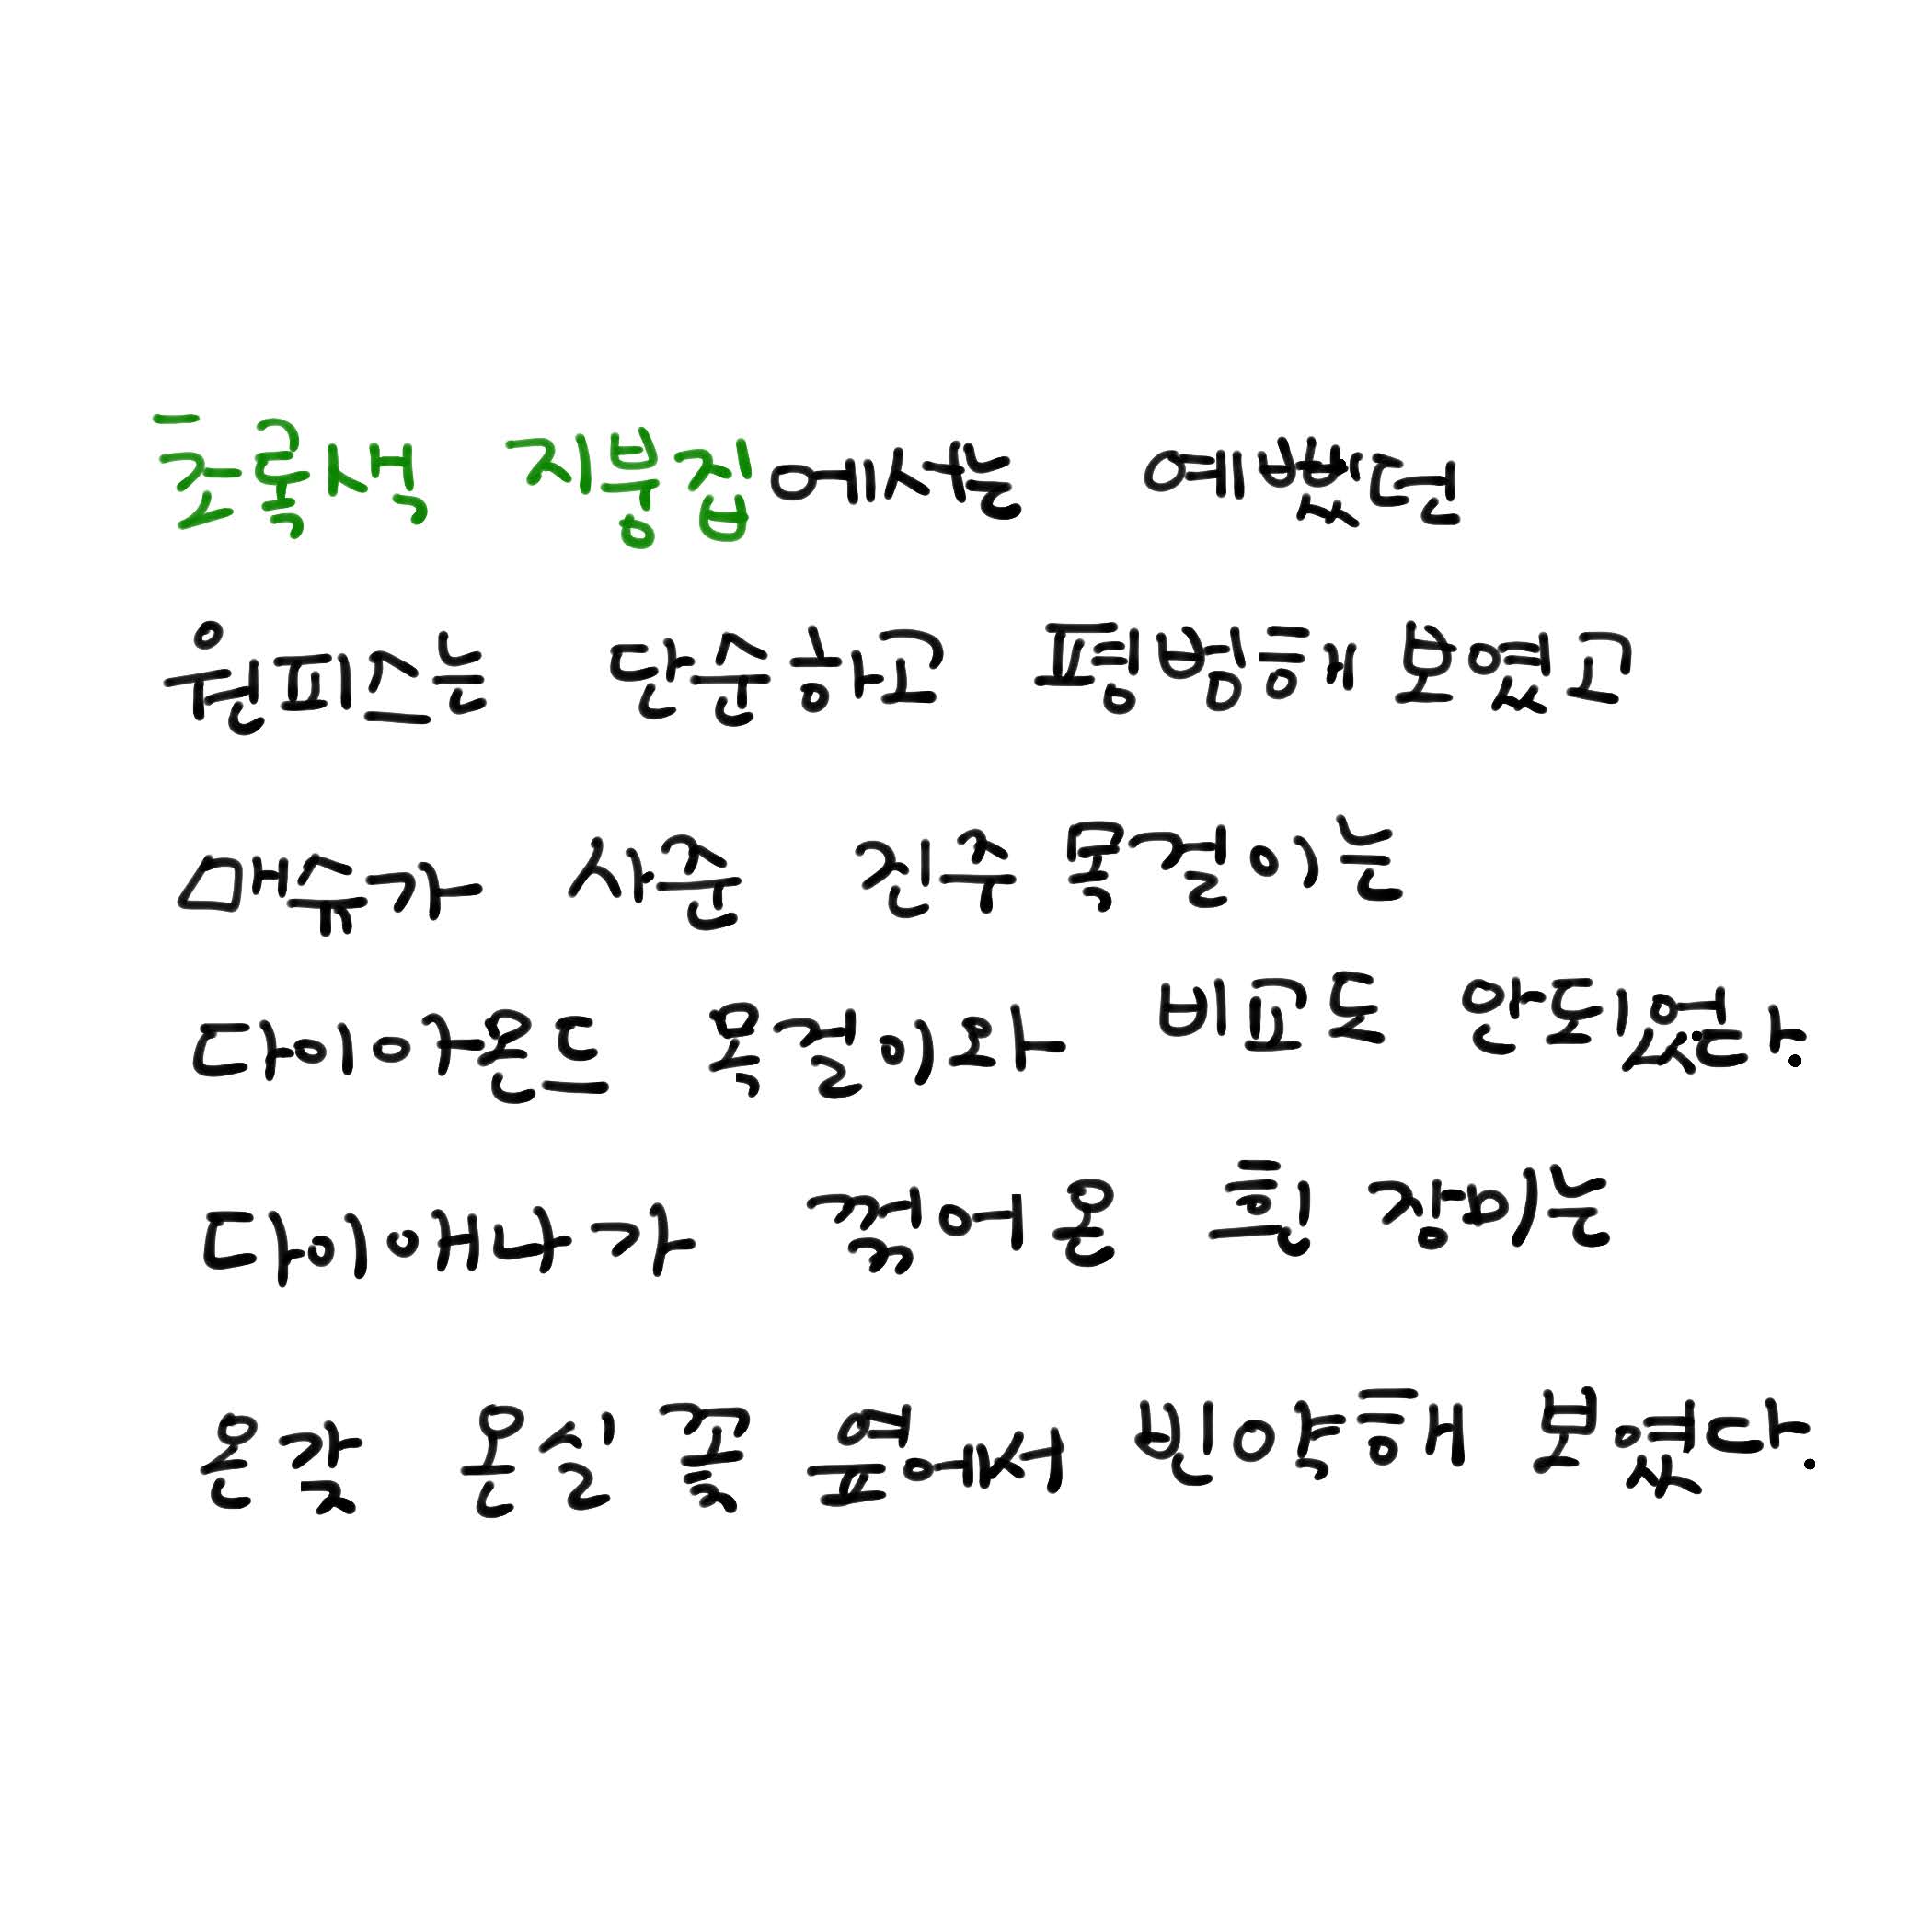 초록색 지붕집에서는 예뻤던
원피스는 단순하고 평범해 보였고
매슈가 사준 진주 목걸이는
다이아몬드 목걸이와 비교도 안되었다.
다이애나가 꺾어온 흰 장미는
온갖 온실 꽃 옆에서 빈약해 보였다.